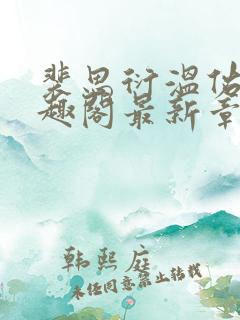 裴思衍温佑
趣阁最新章
韩熙庭
未经同意禁止转载